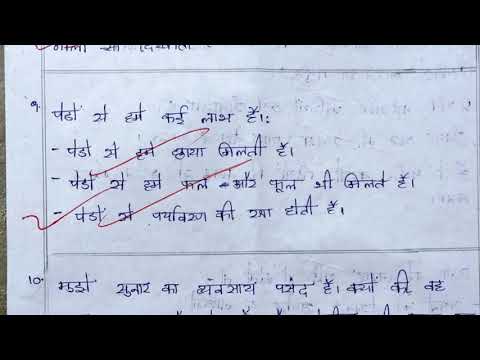 ९. पेडों से हमे कई लाभ हैं।:
- पेडों से हमे छाया मिलती है।
- पेडों से हमे फल और फूल भी मिलते हैं।
- पेडों से पर्यावरण की रक्षा होती है।
10. मुझे सुनार का व्यवसाय पसंद है। क्यों की वह